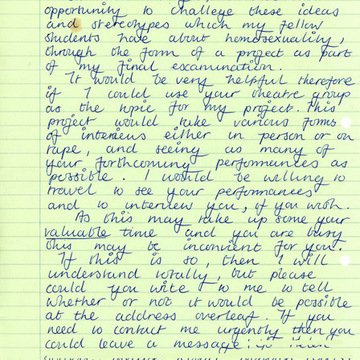 opportunity to challege these ideas
and stereotypes which my fellow
students have about homosexuality,
through the form of a project as part
of my final examination.
It would be very helpful therefore
if I could use your theatre group
as the topic for my project. This
project would take various forms
of interviews either in person or on
tape, and seeing as many of
your forthcoming performances as
possible. I would be willing to
travel to see your performances
and to interview you, if you wish.
As this may take up some your
valuable time and you are busy
this may be inconient for you.
If this is so, then I will
understand totally, but please
could you wite to me to tell
whether or not it would be possible
at the address overleaf. If you
need to contact me urgently then you
could leave a message